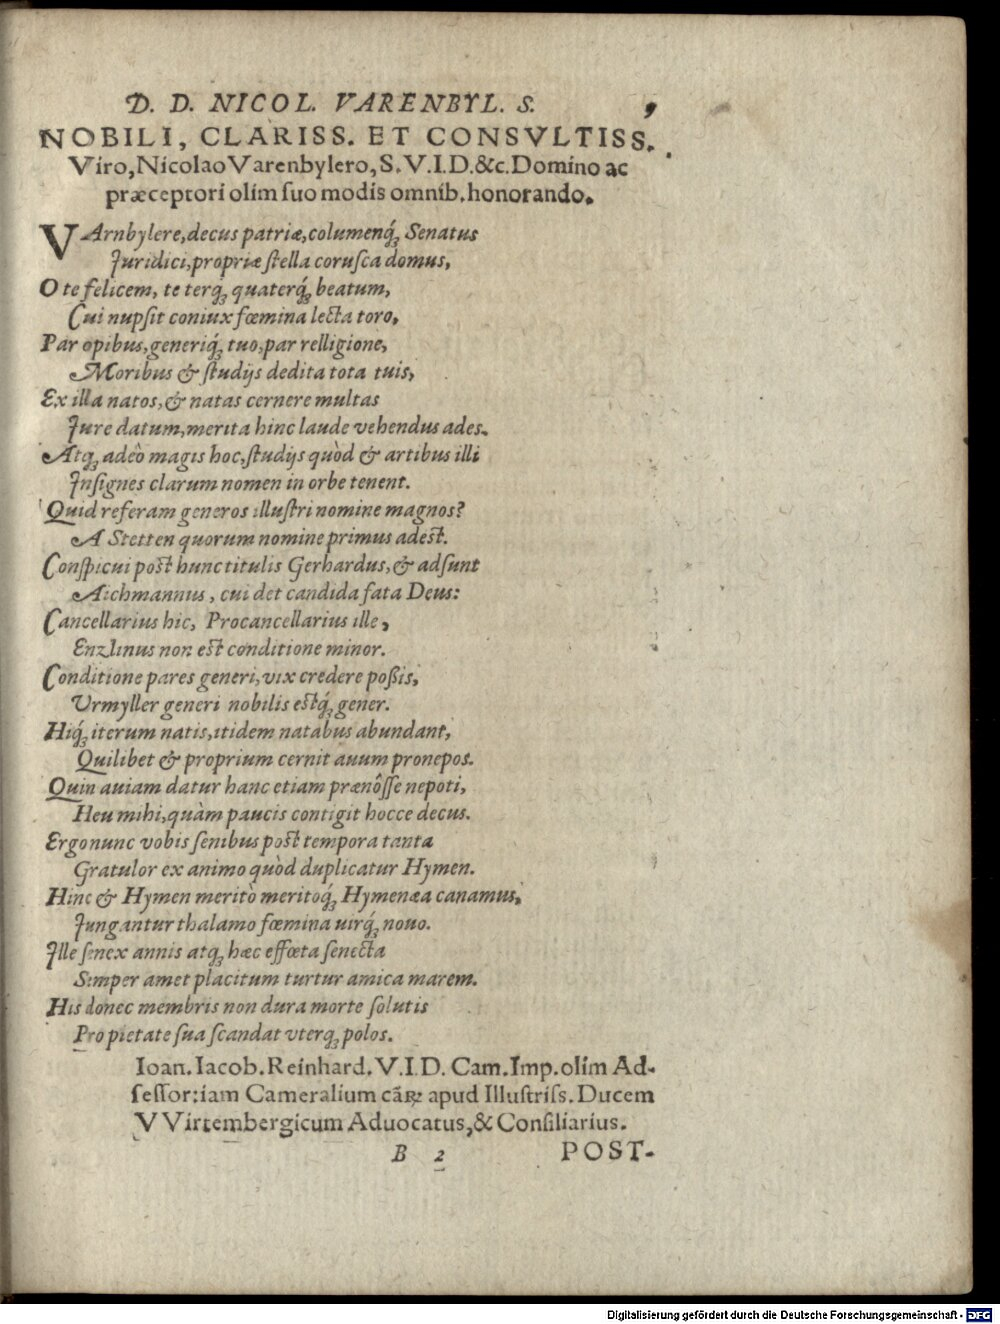 D. D. NICOL. VARENBYL. S. 9
NOBILI, CLARISS. ET CONSVLTISS.
Viro, Nicolao Varenbylero, S. V. I. D. &c. Domino ac
præceptori olim ſuo modis omnib. honorando.
VArnbylere, decus patriæ, columenq́ꝫ Senatus
Juridici, propriæ ſtella coruſca domus,
O te felicem, te terq́ꝫ quaterq́ꝫ beatum,
Cui nupſit coniux fœmina lecta toro,
Par opibus, generiq́ꝫ tuo, par relligione,
Moribus & ſtudijs dedita tota tuis,
Ex illa natos, & natas cernere multas
Jure datum, merita hinc laude vehendus ades.
Atqꝫ adeò magis hoc, ſtudijs quòd & artibus illi
Inſignes clarum nomen in orbe tenent.
Quid referam generos illuſtri nomine magnos?
A Stetten quorum nomine primus adeſt.
Conſpicui poſt hunc titulis Gerhardus, & adſunt
Aichmannus, cui det candida fata Deus:
Cancellarius hic, Procancellarius ille,
Enzlinus non eſt conditione minor.
Conditione pares generi, vix credere poßis,
Vrmyller generi nobilis eſtq́ꝫ gener.
Hiq́ꝫ iterum natis, itidem natabus abundant,
Quilibet & proprium cernit auum pronepos.
Quin auiam datur hanc etiam prænôſſe nepoti,
Heu mihi, quàm paucis contigit hocce decus.
Ergo nunc vobis ſenibus poſt tempora tanta
Gratulor ex animo quòd duplicatur Hymen.
Hinc & Hymen meritò meritoq́ꝫ Hymenæa canamus,
Jungantur thalamo fœmina uirq́ꝫ nouo.
Ille ſenex annis atqꝫ hæc effœta ſenecta
Semper amet placitum turtur amica marem.
His donec membris non dura morte ſolutis
Pro pietate ſua ſcandat vterqꝫ polos.
Ioan. Iacob. Reinhard. V. I. D. Cam. Imp. olim Ad-
ſeſſor: iam Cameralium cãꝝ apud Illuſtriſs. Ducem
VVirtembergicum Aduocatus, & Conſiliarius.
B 2 POST-
Digitalisierung gefördert durch die Deutsche Forschungsgemeinschaft - DFG